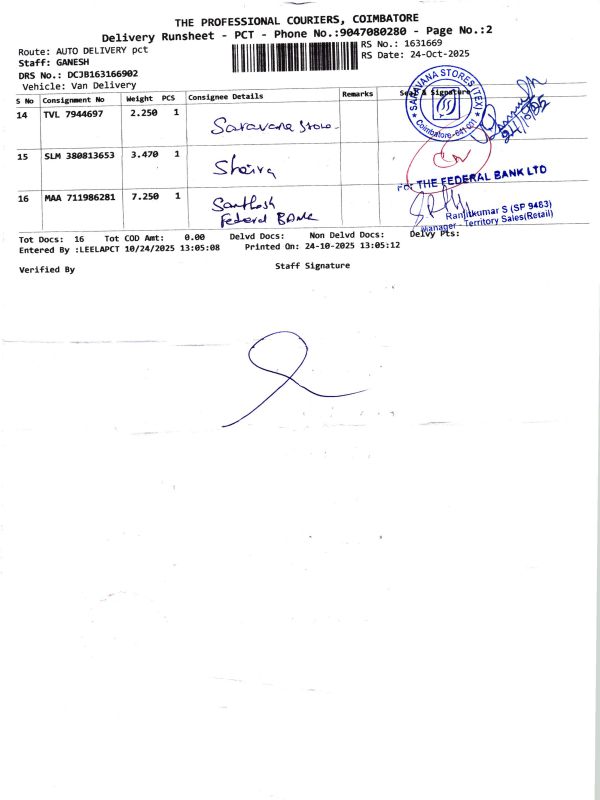 THE PROFESSIONAL COURIERS, COIMBATORE
Delivery Runsheet - PCT - Phone No.:9047080280 - Page No.:2
Route: AUTO DELIVERY pct
RS No.: 1631669
Staff: GANESH
RS Date: 24-Oct-2025
DRS No.: DCJB163166902
Vehicle: Van Delivery
S No Consignment No Weight PCS Consignee Details Remarks Seal & Signature
14 TVL 7944697 2.250 1 Saravana Store.
SARAVANA STORES (TEX)
Coimbatore-641 001
15 SLM 380813653 3.470 1
For THE FEDERAL BANK LTD
16 MAA 711986281 7.250 1 Santhosh
Federal BANK
Ranjitkumar S (SP 9483)
Manager - Territory Sales(Retail)
Tot Docs: 16 Tot COD Amt: 0.00 Delvd Docs: Non Delvd Docs: Delvy Pts:
Entered By :LEELAPCT 10/24/2025 13:05:08 Printed On: 24-10-2025 13:05:12
Verified By Staff Signature